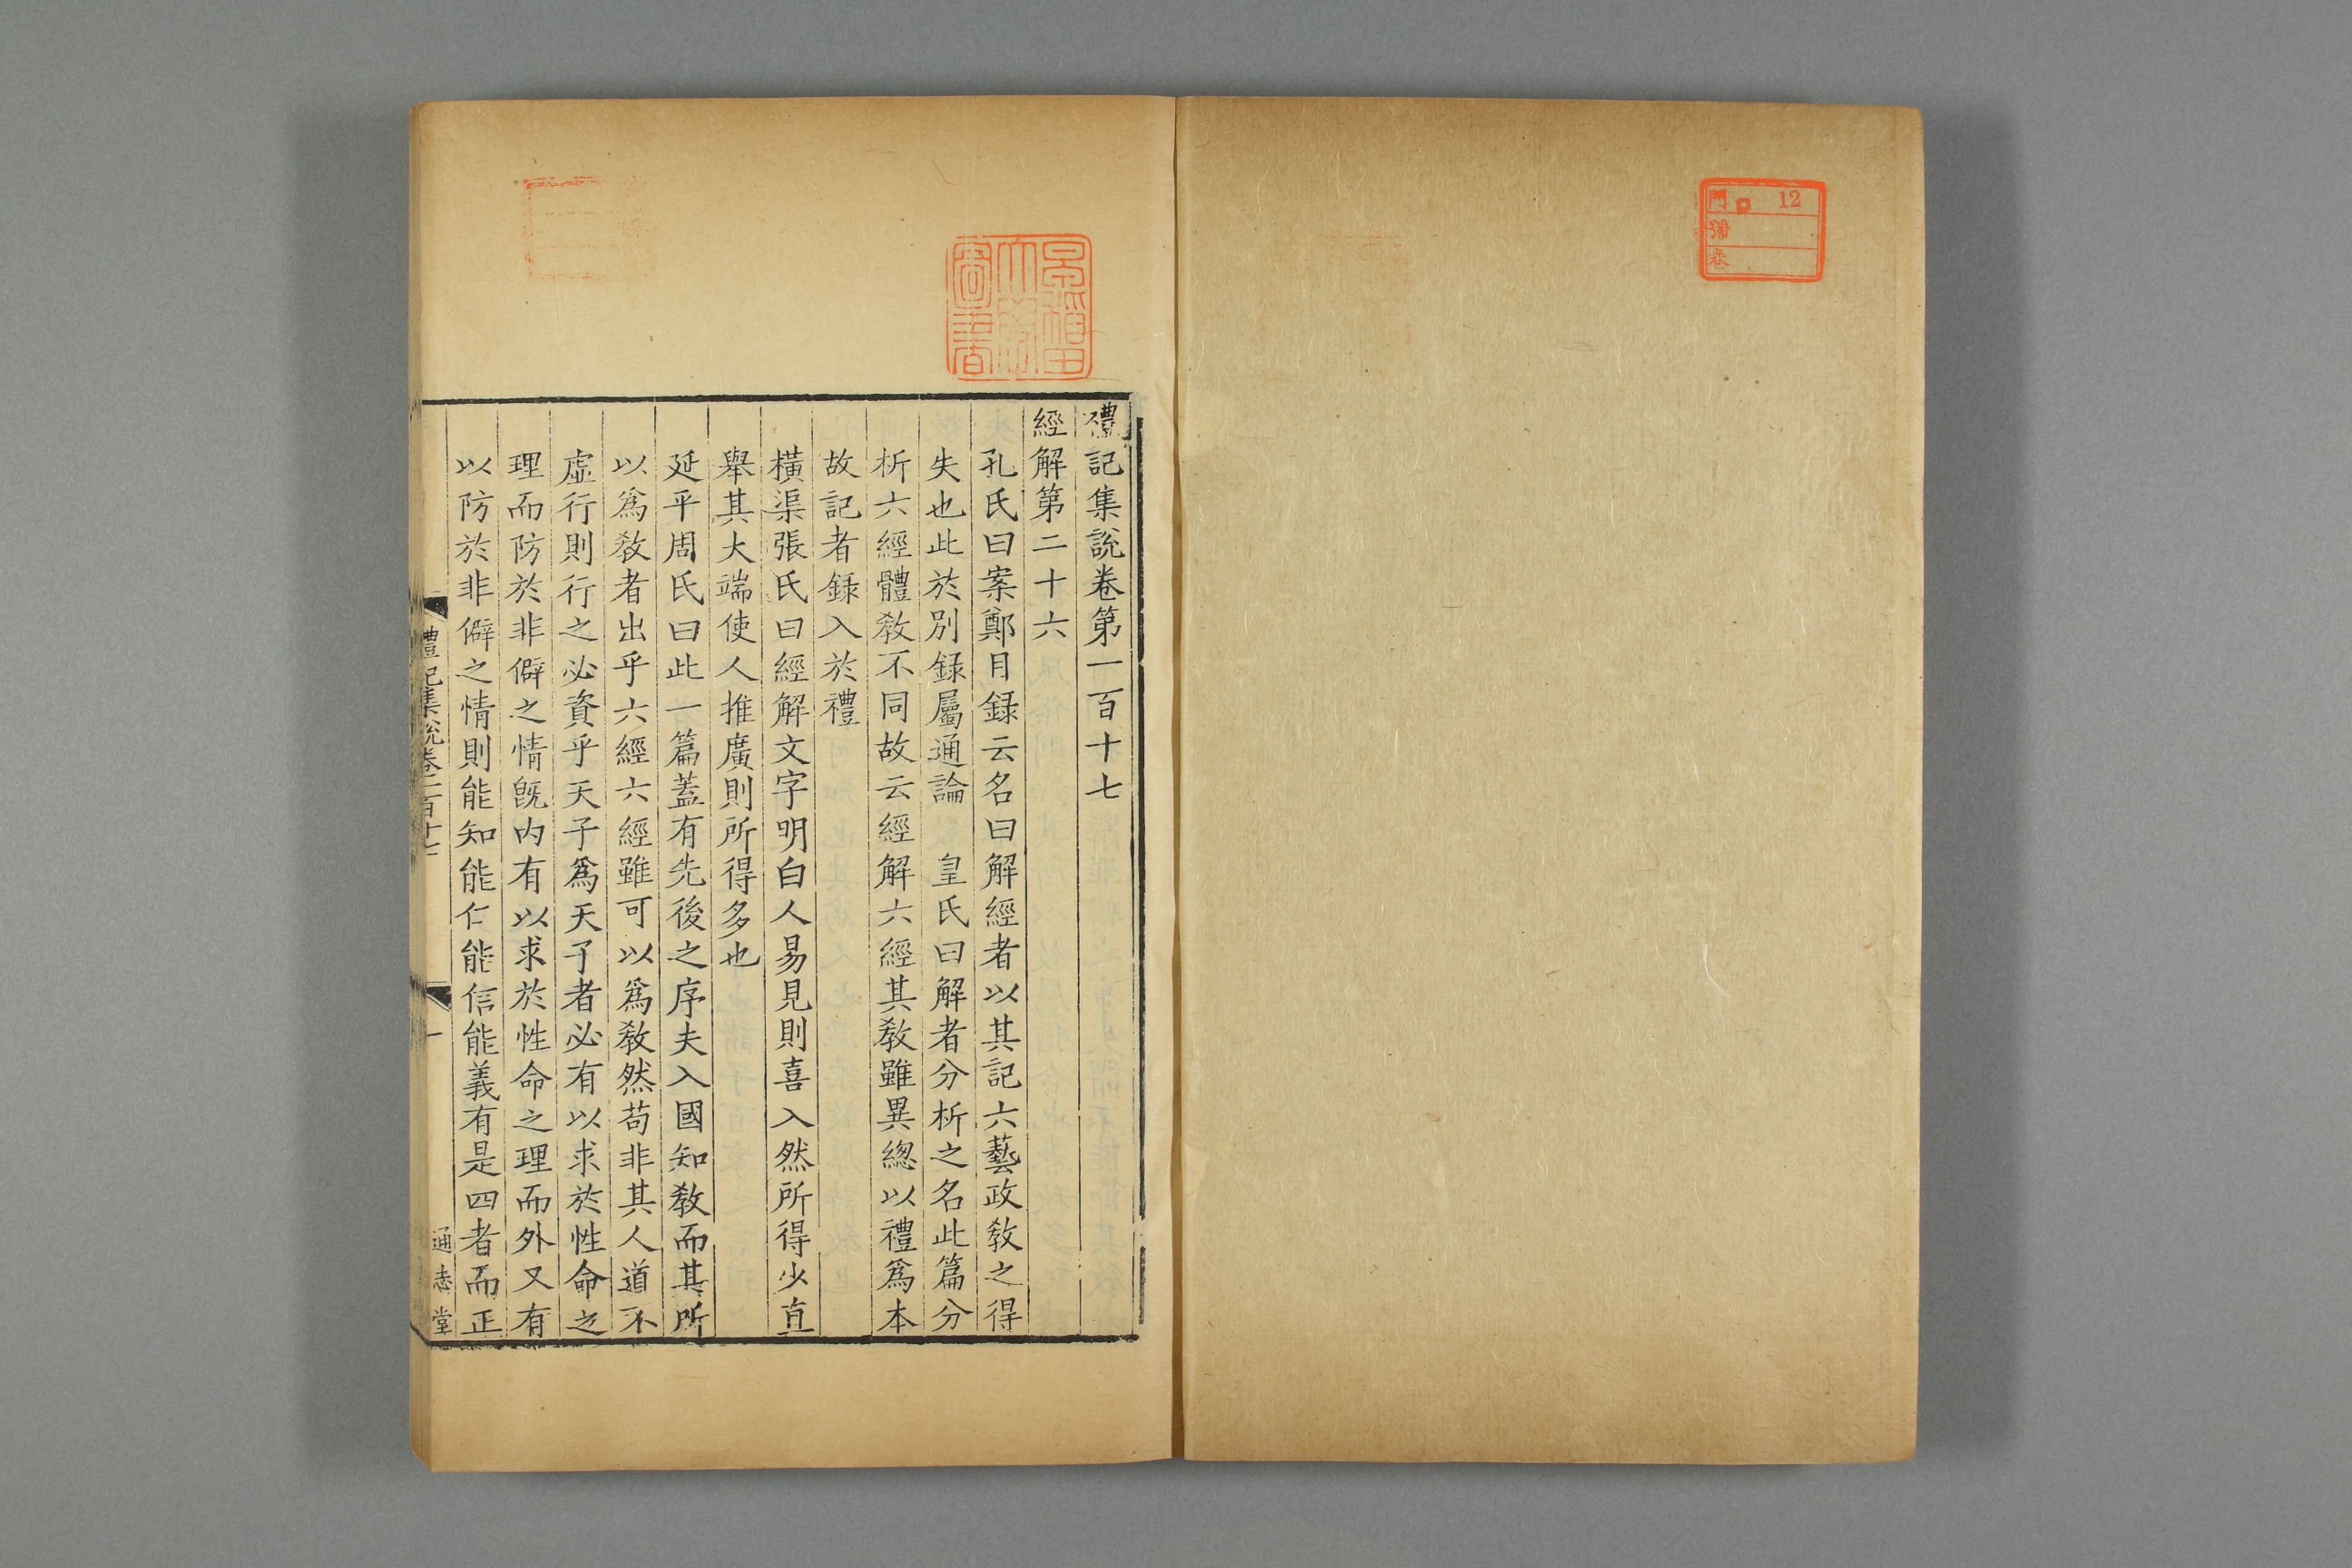 門 12
號
卷
早稲田
大學
圖書
禮記集說卷第一百十七
經解第二十六
孔氏曰案鄭目録云名曰解經者以其記六藝政敎之得
失也此於別録屬通論 皇氏曰解者分析之名此篇分
析六經體敎不同故云經解六經其敎雖異緫以禮爲本
故記者録入於禮
橫渠張氏曰經解文字明白人易見則喜入然所得少直
舉其大端使人推廣則所得多也
延平周氏曰此一篇蓋有先後之序夫入國知敎而其所
以爲敎者出乎六經六經雖可以爲敎然苟非其人道不
虛行則行之必資乎天子爲天子者必有以求於性命之
理而防於非僻之情旣内有以求於性命之理而外又有
以防於非僻之情則能知能仁能信能義有是四者而正
禮記集說卷一百十七
一
通志堂